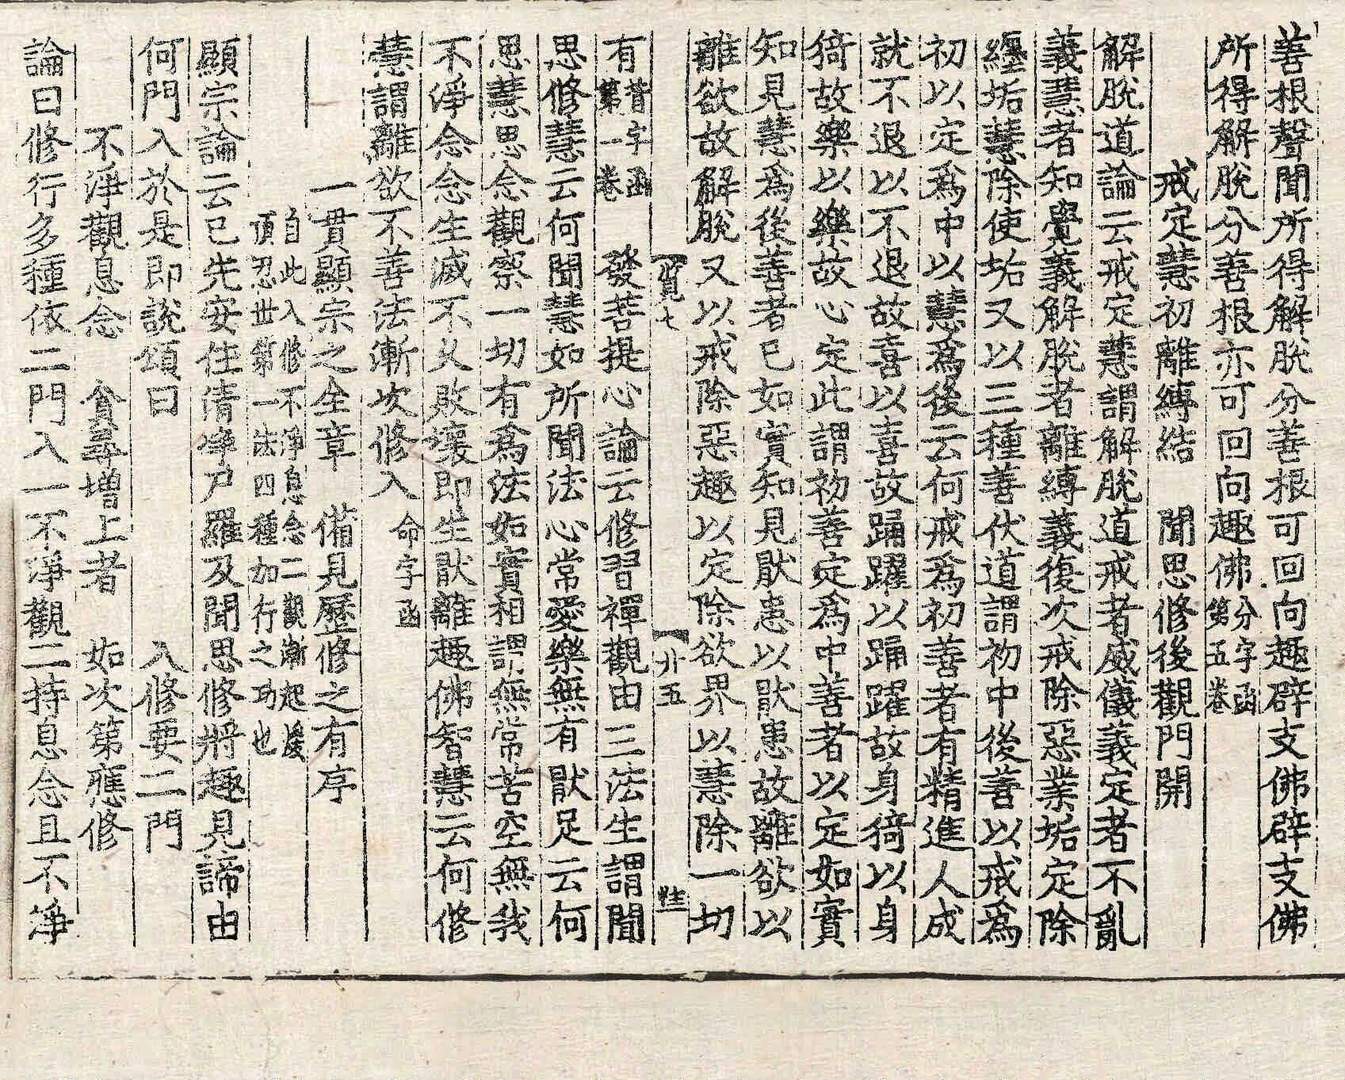 善根聲聞所得解脫分善根可回向趣辟支佛辟支佛
所得解脫分善根亦可回向趣佛分字函第五卷
戒定慧初離縛結　聞思修後觀門開
解脫道論云戒定慧謂解脫道戒者威儀義定者不亂
義慧者知覺義解脫者離縛義復次戒除惡業垢定除
纏垢慧除使垢又以三種善伏道謂初中後善以戒爲
初以定爲中以慧爲後云何戒爲初善者有精進人成
就不退以不退故喜以喜故踊躍以踊躍故身猗以身
猗故樂以樂故心定此謂初善定爲中善者以定如實
知見慧爲後善者已如實知見猒患以猒患故離欲以
離欲故解脫又以戒除惡趣以定除欲界以慧除一切
覽七　廾五
有皆字函第一卷　發菩提心論云修習禪觀由三法生謂聞
思修慧云何聞慧如所聞法心常愛樂無有猒足云何
思慧思念觀察一切有爲法如實相謂無常苦空無我
不淨念念生滅不久敗壞即生猒離趣佛智慧云何修
慧謂離欲不善法漸次修入　命字函
一貫顯宗之全章　備見歷修之有序
自此入修不淨息念二觀漸起煖
頂忍世第一法四種加行之功也
顯宗論云已先安住清淨尸羅及聞思修將趣見諦由
何門入於是即說頌曰　　　　入修要二門
不淨觀息念　貪尋增上者　如次第應修
論曰修行多種依二門入一不淨觀二持息念且不淨